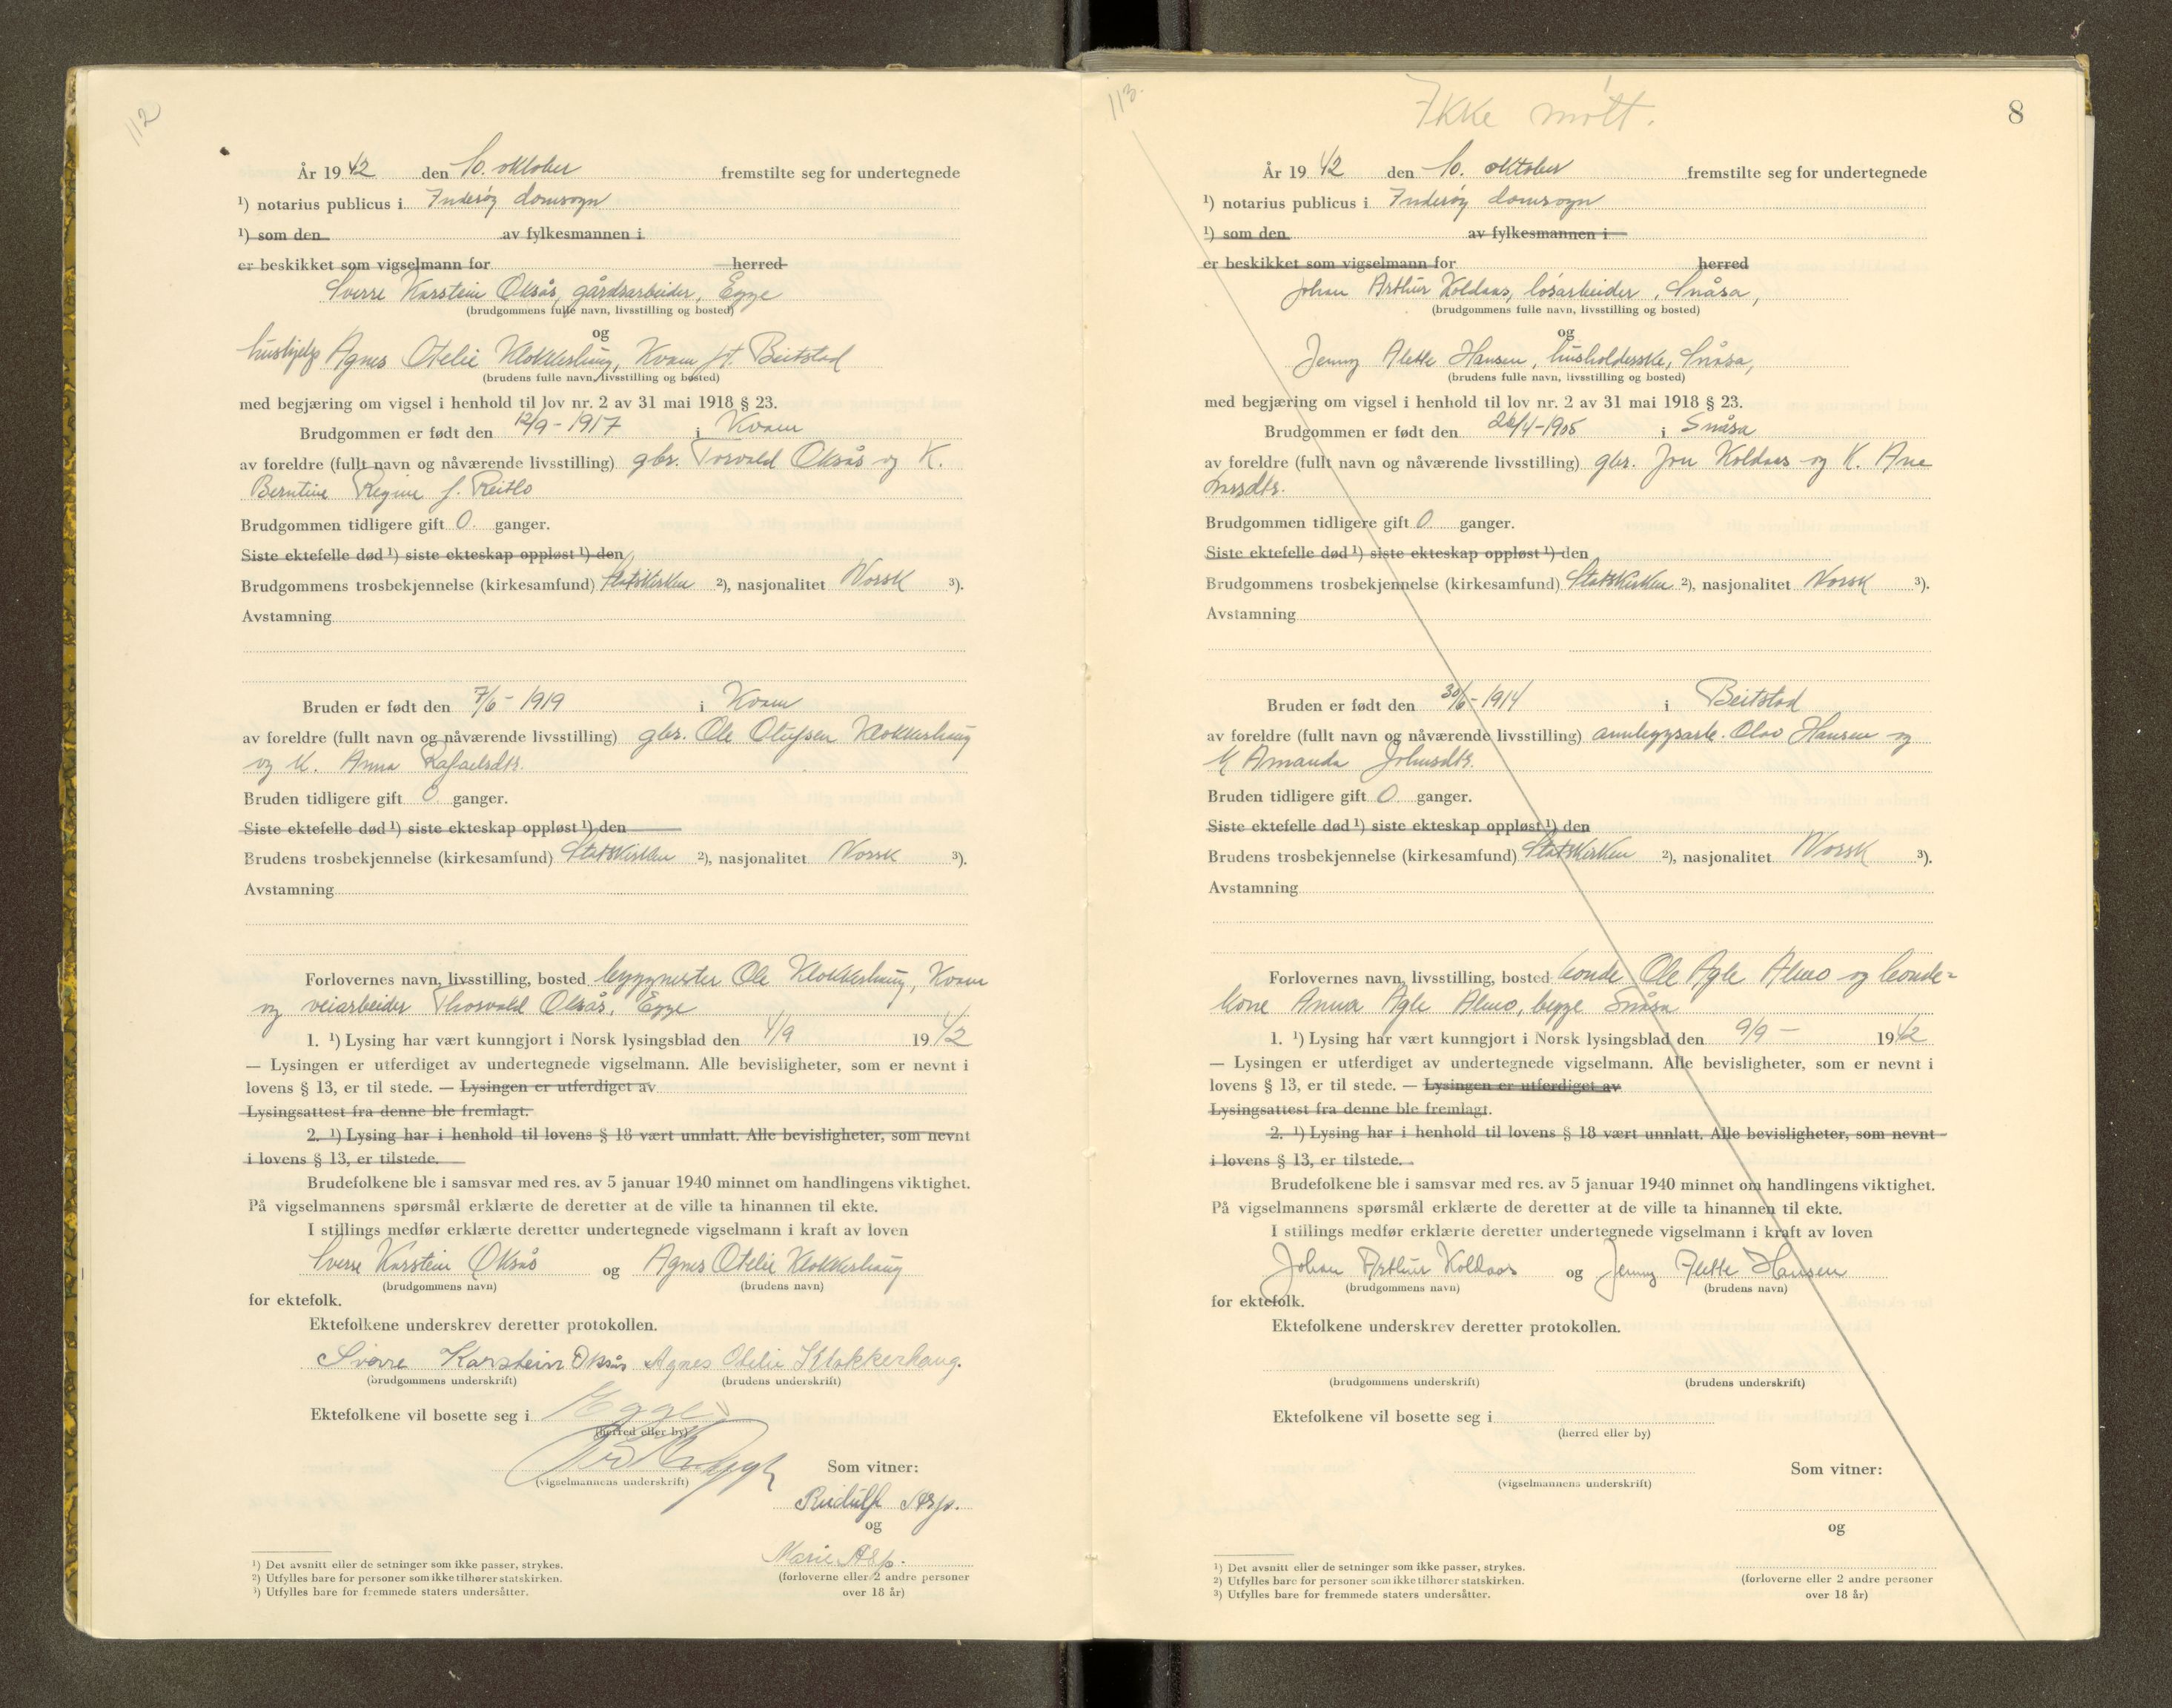 112
År 1942 den 10. oktober fremstilte seg for undertegnede
¹) notarius publicus i Inderøy domsogn
¹) som den av fylkesmannen i
er beskikket som vigselmann for herred
Sverre Karstein Oksås, gårdsarbeider, Egge
(brudgommens fulle navn, livsstilling og bosted)
og
hushjelp Agnes Otelie Klokkerhaug, Kvam pt. Beitstad
(brudens fulle navn, livsstilling og bosted)
med begjæring om vigsel i henhold til lov nr. 2 av 31 mai 1918 § 23.
Brudgommen er født den 12/9 - 1917 i Kvam
av foreldre (fullt navn og nåværende livsstilling) gbr. Torvald Oksås og K.
Berntine Regine f. Reitlo
Brudgommen tidligere gift 0. ganger.
Siste ektefelle død ¹) siste ekteskap oppløst ¹) den
Brudgommens trosbekjennelse (kirkesamfund) Statskirken ²), nasjonalitet Norsk ³).
Avstamning
Bruden er født den 7/6 - 1919 i Kvam
av foreldre (fullt navn og nåværende livsstilling) gbr. Ole Olufsen Klokkerhaug
og K. Anna Rafaelsdtr.
Bruden tidligere gift 0 ganger.
Siste ektefelle død ¹) siste ekteskap oppløst ¹) den
Brudens trosbekjennelse (kirkesamfund) Statskirken ²), nasjonalitet Norsk ³).
Avstamning
Forlovernes navn, livsstilling, bosted byggmester Ole Klokkerhaug, Kvam
og veiarbeider Thorvald Oksås, Egge
1. ¹) Lysing har vært kunngjort i Norsk lysingsblad den 4/9 1942
— Lysingen er utferdiget av undertegnede vigselmann. Alle bevisligheter, som er nevnt i
lovens § 13, er til stede. — Lysingen er utferdiget av
Lysingsattest fra denne ble fremlagt.
2. ¹) Lysing har i henhold til lovens § 18 vært unnlatt. Alle bevisligheter, som nevnt
i lovens § 13, er tilstede.
Brudefolkene ble i samsvar med res. av 5 januar 1940 minnet om handlingens viktighet.
På vigselmannens spørsmål erklærte de deretter at de ville ta hinannen til ekte.
I stillings medfør erklærte deretter undertegnede vigselmann i kraft av loven
Sverre Karstein Oksås og Agnes Otelie Klokkerhaug
(brudgommens navn) (brudens navn)
for ektefolk.
Ektefolkene underskrev deretter protokollen.
Sverre Karstein Oksås Agnes Otelie Klokkerhaug.
(brudgommens underskrift) (brudens underskrift)
Ektefolkene vil bosette seg i Egge
(herred eller by)
(vigselmannens underskrift)
Som vitner:
Rudulf Arp.
og
Marie Arp.
(forloverne eller 2 andre personer
over 18 år)
¹) Det avsnitt eller de setninger som ikke passer, strykes.
²) Utfylles bare for personer som ikke tilhører statskirken.
³) Utfylles bare for fremmede staters undersåtter.
113.
Ikke møtt.
8
År 1942 den 10. oktober fremstilte seg for undertegnede
¹) notarius publicus i Inderøy domsogn
¹) som den av fylkesmannen i
er beskikket som vigselmann for herred
Johan Arthur Koldaas, løsarbeider, Snåsa,
(brudgommens fulle navn, livsstilling og bosted)
og
Jenny Alette Hansen, husholderske, Snåsa,
(brudens fulle navn, livsstilling og bosted)
med begjæring om vigsel i henhold til lov nr. 2 av 31 mai 1918 § 23.
Brudgommen er født den 26/4 - 1905 i Snåsa
av foreldre (fullt navn og nåværende livsstilling) gbr. Jon Koldaas og K. Ane
Brudgommen tidligere gift 0 ganger.
Siste ektefelle død ¹) siste ekteskap oppløst ¹) den
Brudgommens trosbekjennelse (kirkesamfund) Statskirken ²), nasjonalitet Norsk ³).
Avstamning
Bruden er født den 30/6 - 1914 i Beitstad
av foreldre (fullt navn og nåværende livsstilling) anleggsarb. Olav Hansen og
K Amanda Johnsdtr.
Bruden tidligere gift 0 ganger.
Siste ektefelle død ¹) siste ekteskap oppløst ¹) den
Brudens trosbekjennelse (kirkesamfund) Statskirken ²), nasjonalitet Norsk ³).
Avstamning
Forlovernes navn, livsstilling, bosted bonde Ole Agle Almo og bonde-
kone Anna Agle Almo, begge Snåsa
1. ¹) Lysing har vært kunngjort i Norsk lysingsblad den 9/9 - 1942
— Lysingen er utferdiget av undertegnede vigselmann. Alle bevisligheter, som er nevnt i
lovens § 13, er til stede. — Lysingen er utferdiget av
Lysingsattest fra denne ble fremlagt.
2. ¹) Lysing har i henhold til lovens § 18 vært unnlatt. Alle bevisligheter, som nevnt
i lovens § 13, er tilstede.
Brudefolkene ble i samsvar med res. av 5 januar 1940 minnet om handlingens viktighet.
På vigselmannens spørsmål erklærte de deretter at de ville ta hinannen til ekte.
I stillings medfør erklærte deretter undertegnede vigselmann i kraft av loven
Johan Arthur Koldaas og Jenny Alette Hansen
(brudgommens navn) (brudens navn)
for ektefolk.
Ektefolkene underskrev deretter protokollen.
(brudgommens underskrift) (brudens underskrift)
Ektefolkene vil bosette seg i
(herred eller by)
(vigselmannens underskrift)
Som vitner:
og
(forloverne eller 2 andre personer
over 18 år)
¹) Det avsnitt eller de setninger som ikke passer, strykes.
²) Utfylles bare for personer som ikke tilhører statskirken.
³) Utfylles bare for fremmede staters undersåtter.